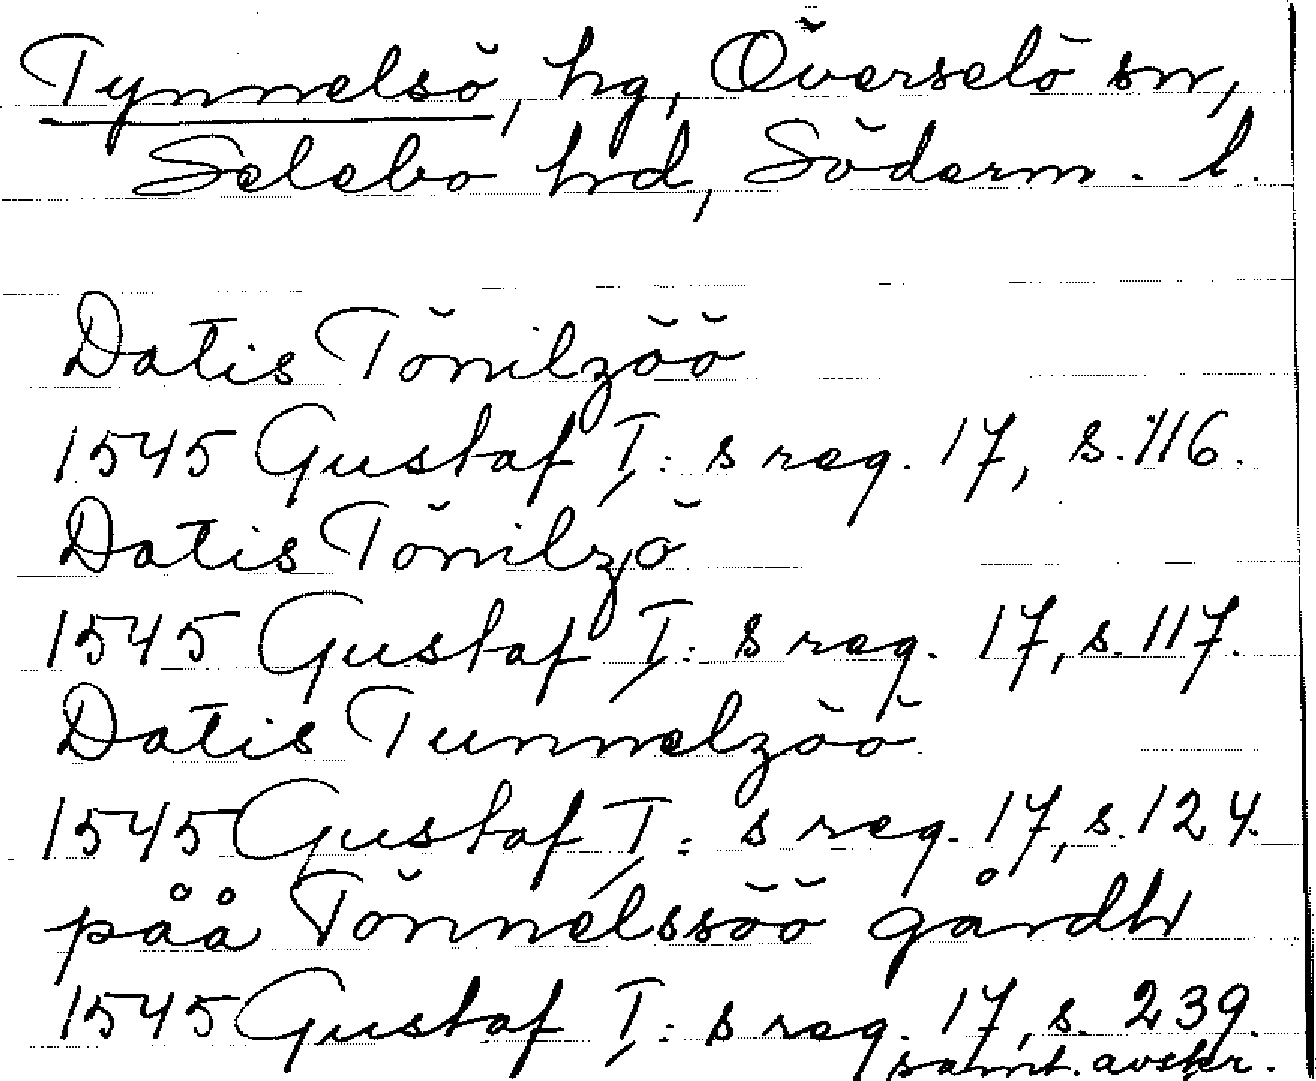 Tynnelsö, hg, Överselö sn,
Selebo hd, Söderm. l.
Datis Tönilzöö
1545 Gustaf I: s reg. 17, s. 116.
Datis Tönilzö
1545 Gustaf I: s reg. 17, s. 117.
Datis Tunnelzöö
1545 Gustaf I: s reg. 17, s. 124.
påå Tönnelssöö gårdh
1545 Gustaf I: s reg. 17, s. 239.
samt. avskr.